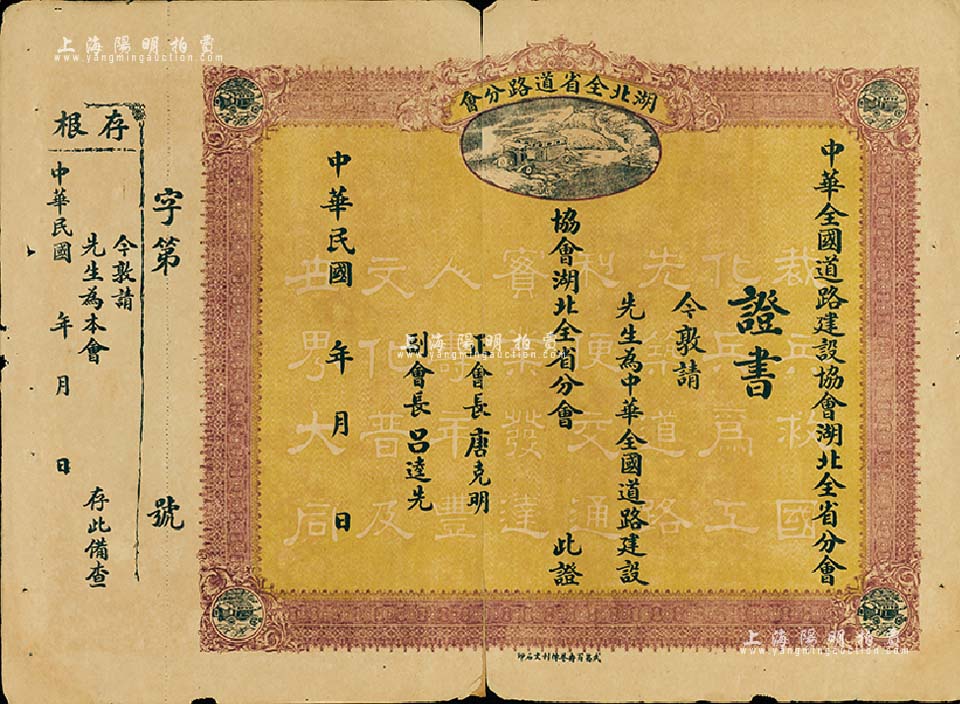 湖北全省道路分會
中華全國道路建設協會湖北全省分會
證書
今敦請
先生為中華全國道路建設
協會湖北全省分會　此證
正會長唐克明
副會長呂逵先
中華民國　年　月　日
裁兵救國
化兵爲工
先築道路
利便交通
實業發達
人壽年豐
文化普及
世界大同
字第　號
存根
今敦請
先生為本會
存此備查
中華民國　年　月　日
上海陽明拍賣
www.yangmingauction.com
上海陽明拍賣
www.yangmingauction.com
上海陽明拍賣
www.yangmingauction.com